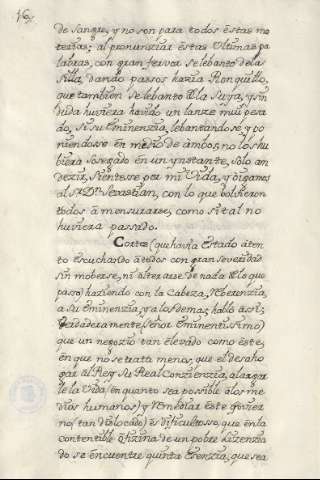 de sangre, y no son para todos estas ma
terias; al pronunziar estas Ultimas pa
labras, con gran fervor se lebantó de la
silla, dando passos hazia Ronquillo,
que tambien se lebantó de la suya, y sin
duda huviera havido un lanze mui pesa
do, si su Eminenzia, lebantandose y po
niendosse en medio de ambos, no lo hu
biera sosegado en un ynstante, solo con
dezir, Sientese por mi Vida, y oigamos
al Sr. Dn. Sevastian, con lo que bolvieron
todos á mensurarse, como si tal no
huviera passado.
Cortes (que havia estado aten
to escuchando á todos con gran severidad
sin moberse, ni alterarse de nada de lo que
passó) haziendo con la Cabeza, Reverenzia,
a su Eminenzia, y a los demas, habló assi:
Verdaderamente (Señor Eminentissimo)
que un negozio tan elevado como este,
en que no se trata menos, que el desaho
gar al Rey su Real Conzienzia, alargar
le la Vida (en quanto sea possible a los me
dios humanos) y rembolar este govier
no (tan dislocado) es dificultoso, que en la
contentible ofizina de un pobre Lizenzia
do se encuentre quinta esenzia, que sea